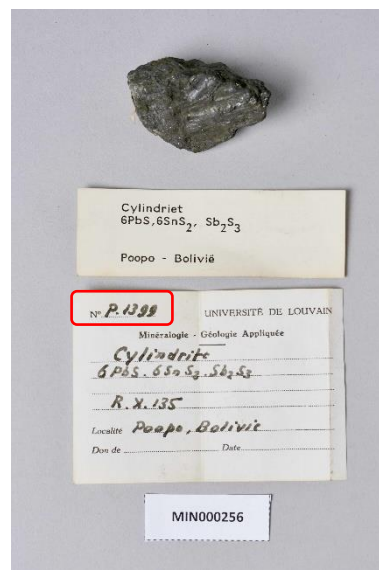 Cylindriet
6PbS,6SnS2, Sb2S3
Poopo - Bolivië
No P.1399 UNIVERSITÉ DE LOUVAIN
Minéralogie - Géologie Appliquée
Cylindrite
6 PbS. 6 Sn S2. Sb2S3
R.X.135
Localité Poopo, Bolivie
Don de Date
MIN000256